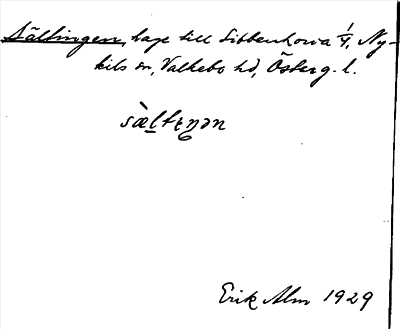 Sältingen, hage till Sibbenhorva 1/4, Ny-
kils sn, Valkebo hd, Österg. l.
sæ̀ltıŋən
Erik Alm 1929